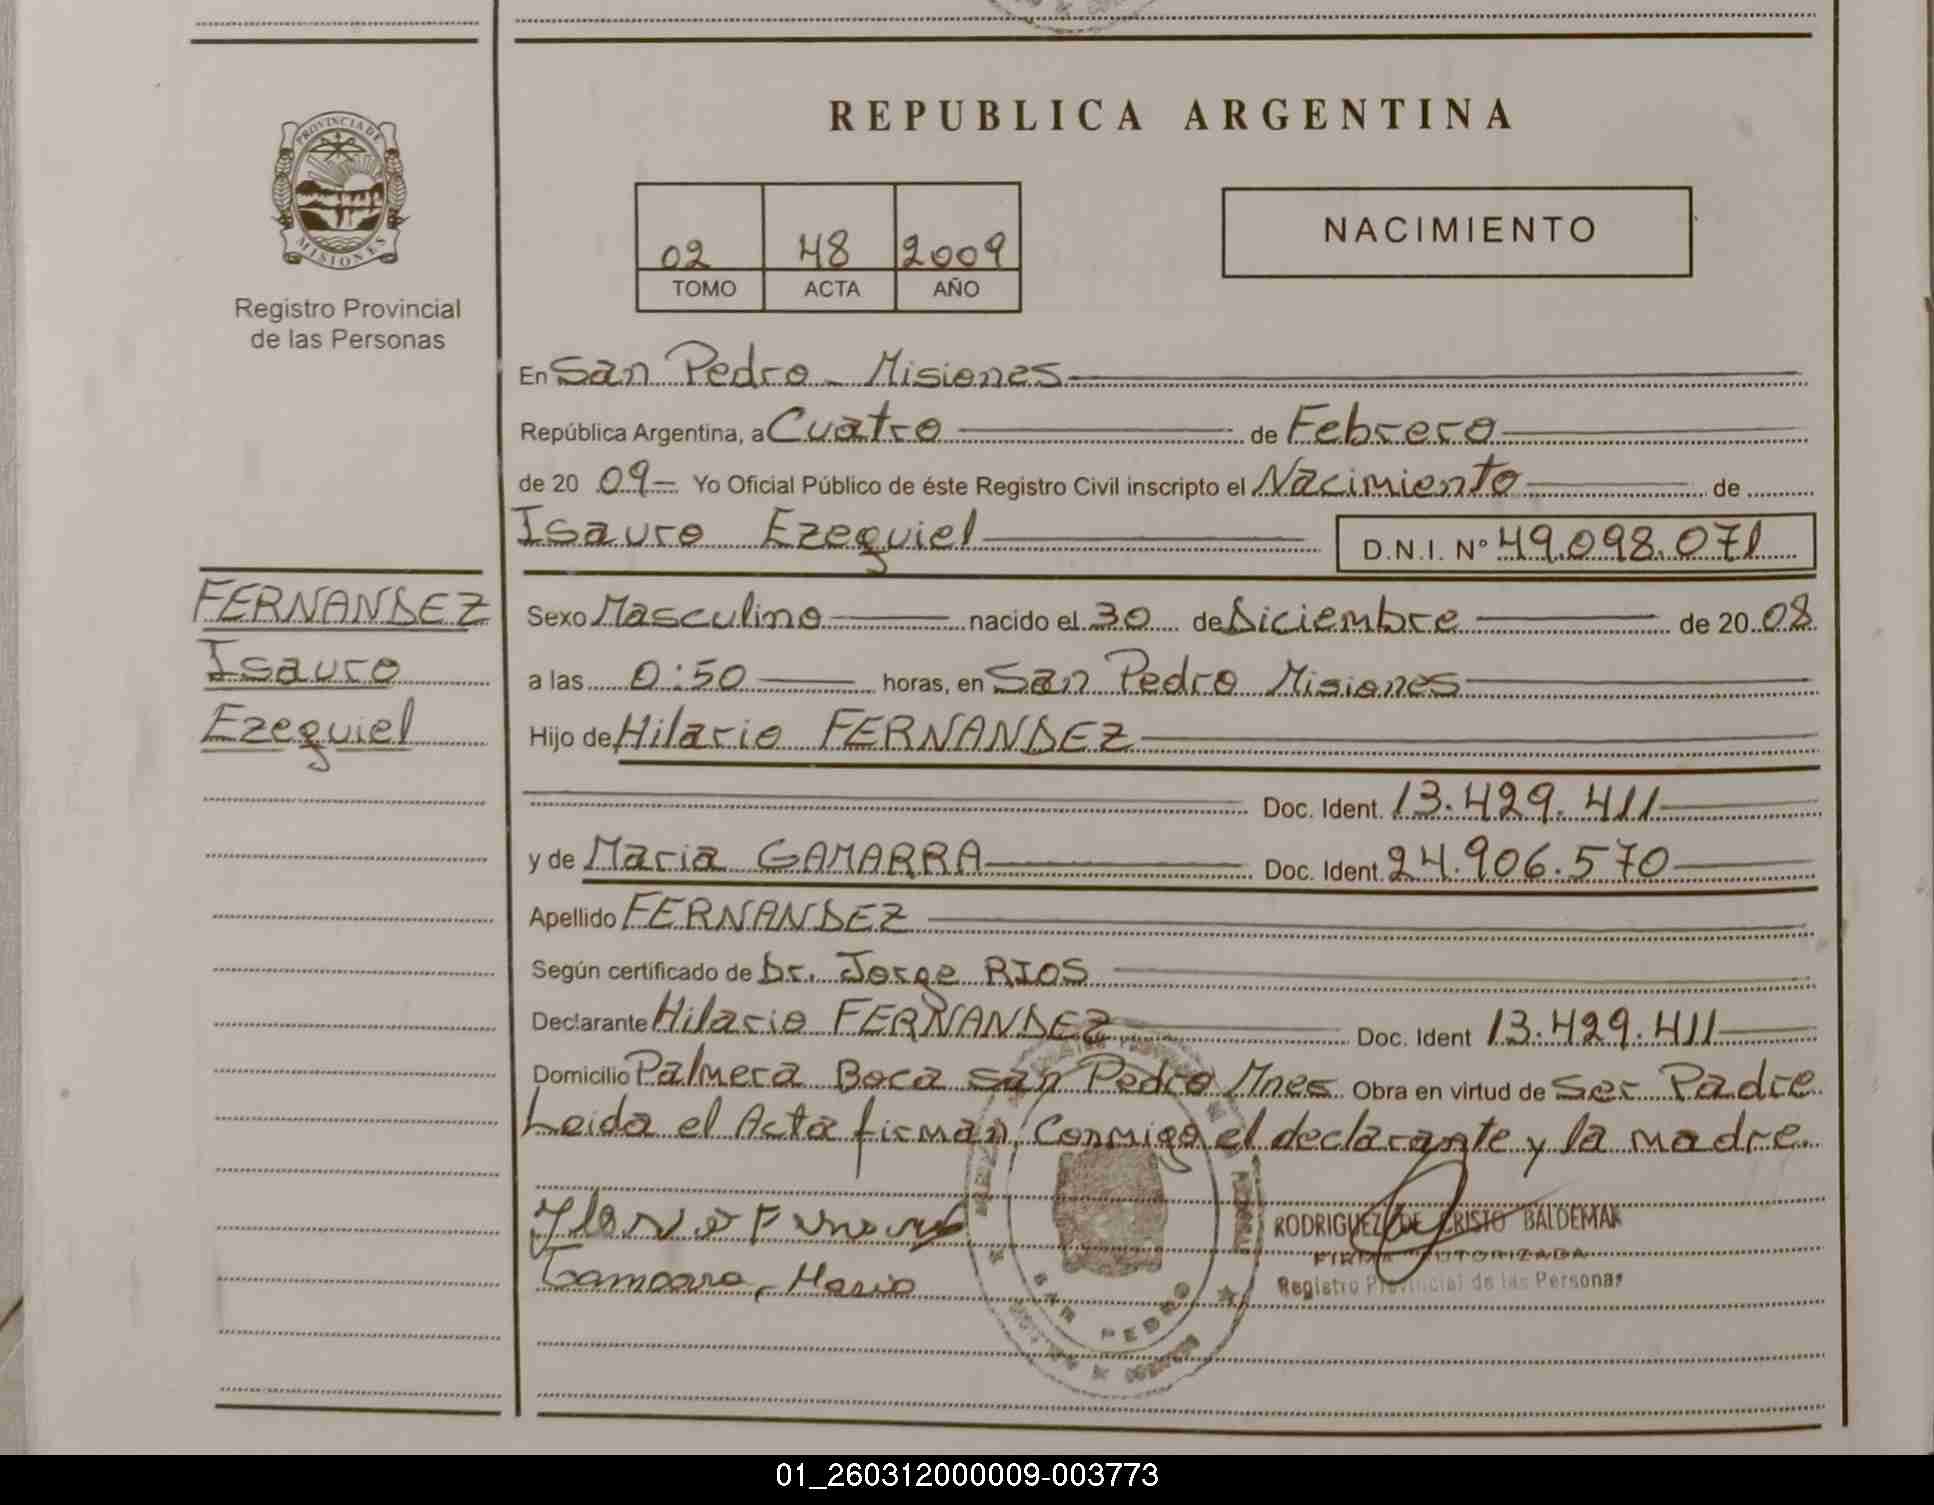 REPUBLICA ARGENTINA
PROVINCIA DE
MISIONES
Registro Provincial
de las Personas
02 48 2009
TOMO ACTA AÑO
NACIMIENTO
En San Pedro - Misiones
República Argentina, a Cuatro de Febrero
de 20 09 Yo Oficial Público de éste Registro Civil inscripto el Nacimiento de
Isauro Ezequiel D.N.I. Nº 49.098.071
FERNANDEZ
Isauro
Ezequiel
Sexo Masculino nacido el 30 de Diciembre de 20 08
a las 0:50 horas, en San Pedro Misiones
Hijo de Hilario FERNANDEZ
Doc. Ident. 13.429.411
y de Maria GAMARRA Doc. Ident. 24.906.570
Apellido FERNANDEZ
Según certificado de Dr. Jorge RIOS
Declarante Hilario FERNANDEZ Doc. Ident 13.429.411
Domicilio Palmera Boca San Pedro Mnes Obra en virtud de Ser Padre
Leida el Acta firman Conmigo el declarante y la madre.
RODRIGUEZ DE CRISTO BALDEMAR
FIRMA AUTORIZADA
Registro Provincial de las Personas
Maria
SAN PEDRO
01_260312000009-003773